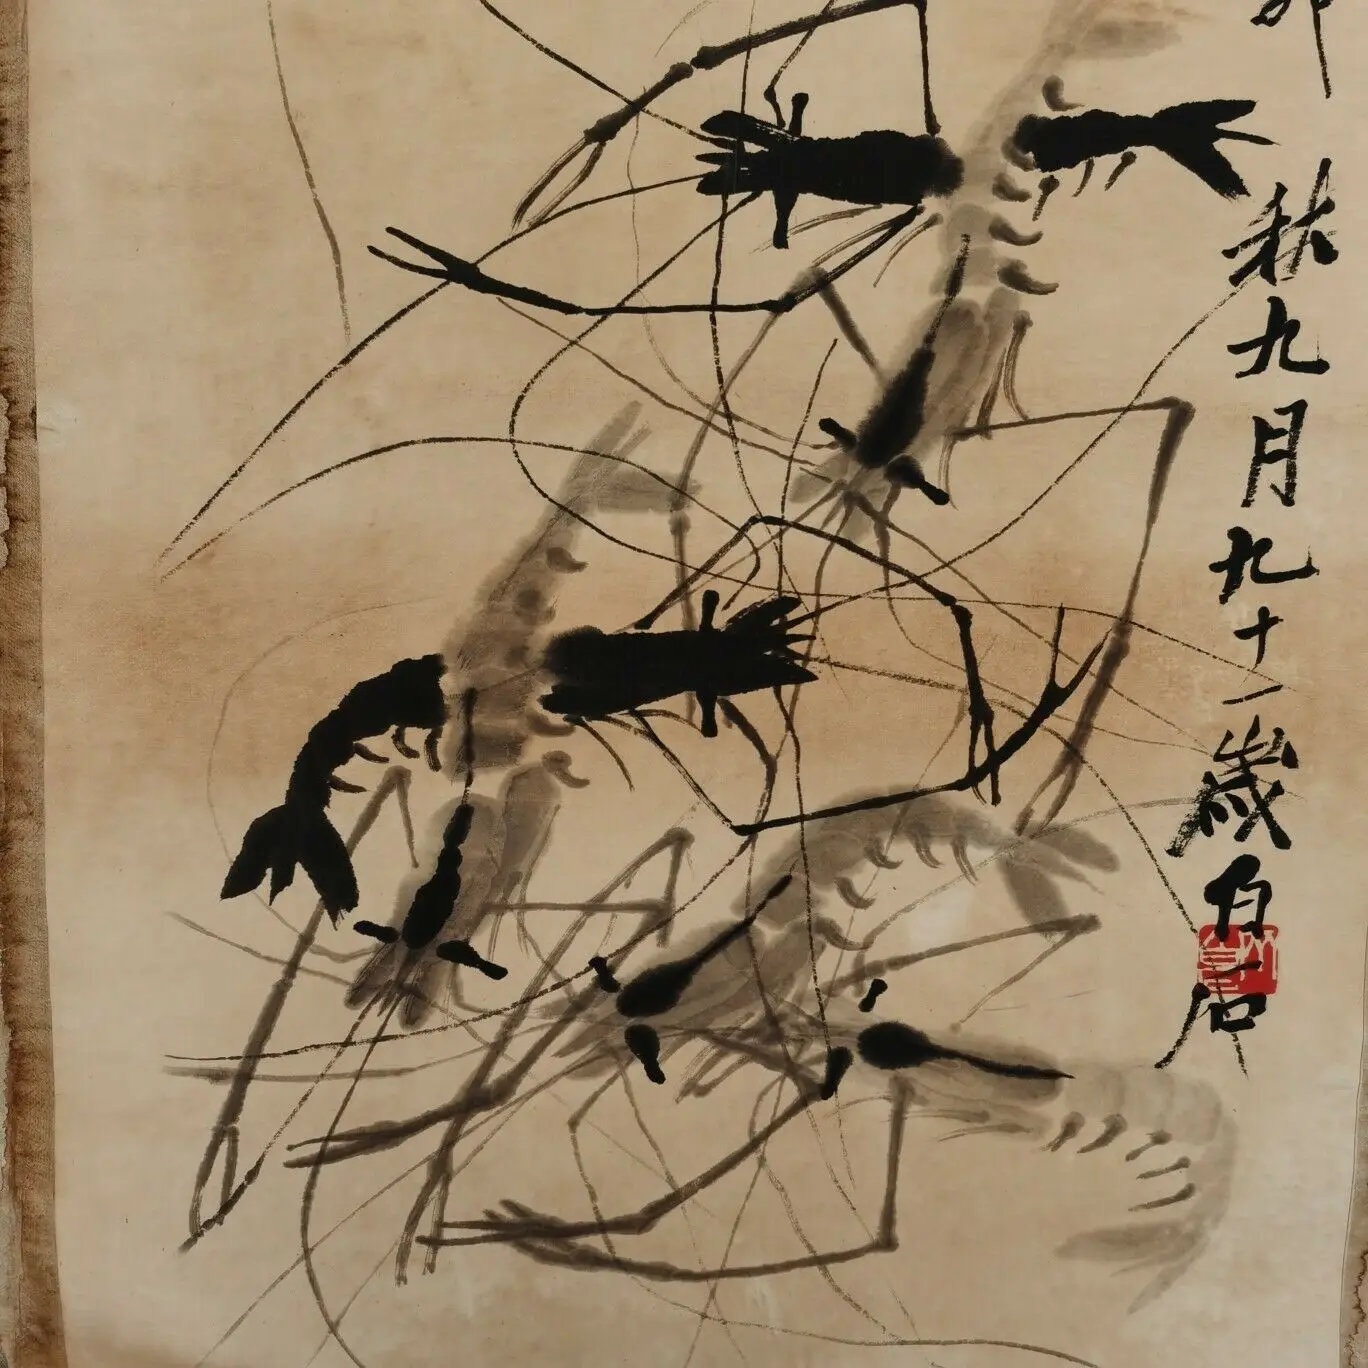 卯秋九月九十一歲白石